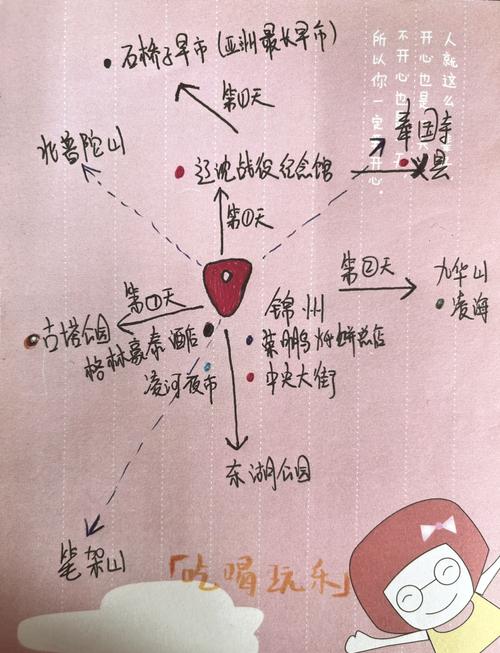 人就这么
开心也是
不开心也
所以你一
石桥子早市(亚洲最长早市)
第①天
北普陀山
辽沈战役纪念馆
奉国寺
义县
第①天
第②天
九华山
凌海
第①天
锦州
古塔公园
格林豪泰酒店
凌河夜市
中央大街
东湖公园
笔架山
「吃喝玩乐」